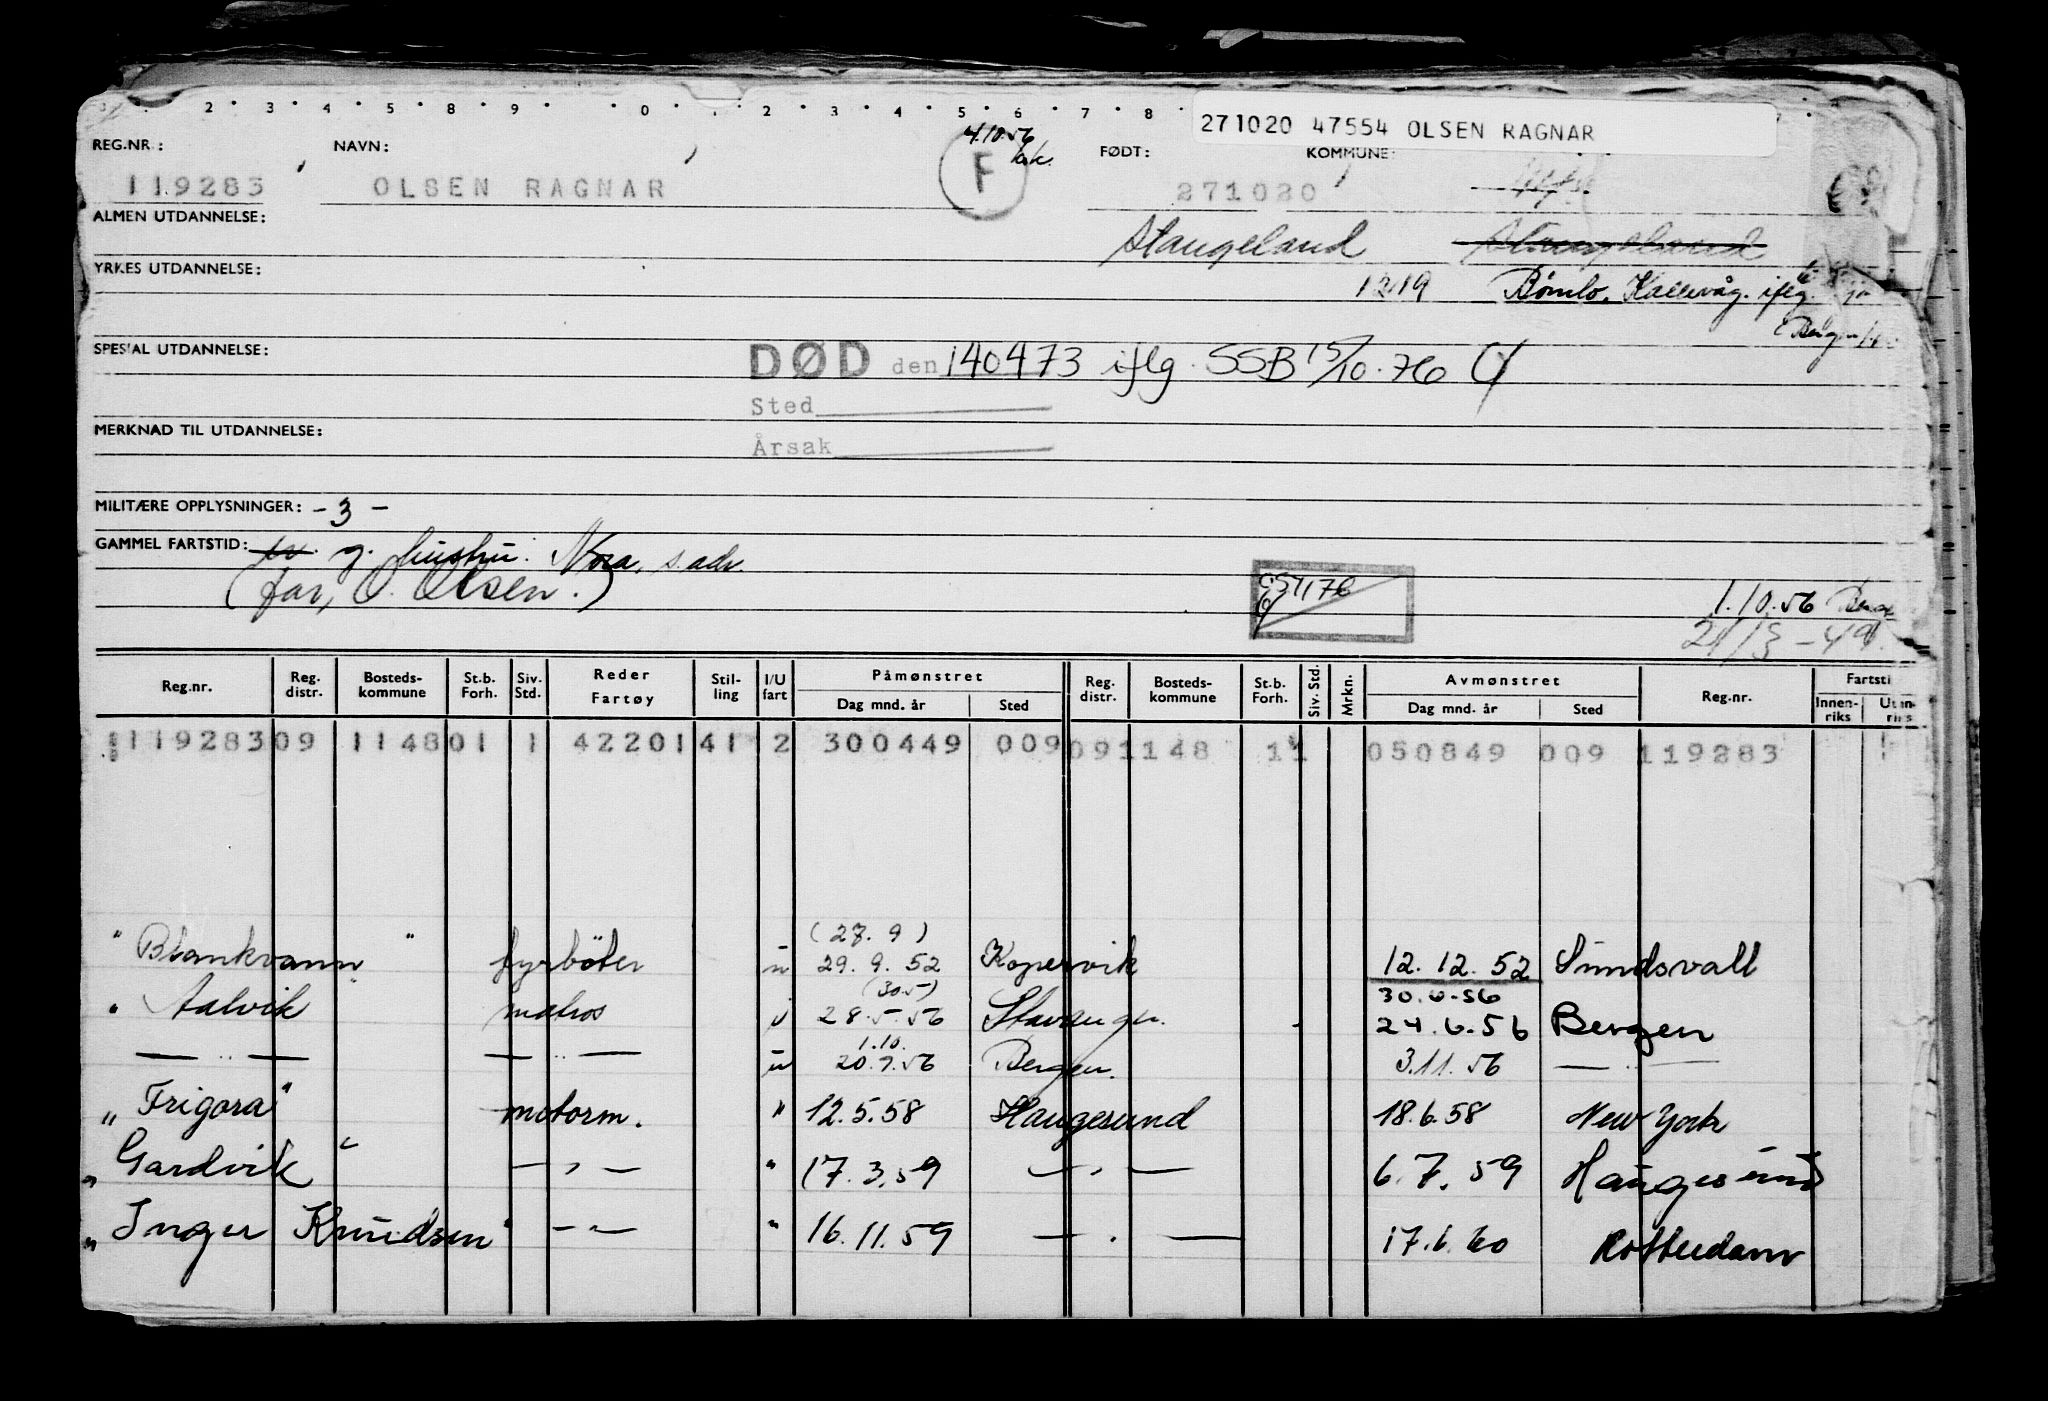 2 . 3 . 4 . 5 . 8 . 9 . 0 . . 2 . 3 . 4 . 5 . 6 . 7 . 8
271020 47554 OLSEN RAGNAR
4.10.56
REG.NR.: NAVN: F FØDT: KOMMUNE:
119283 OLSEN RAGNAR 271020
ALMEN UTDANNELSE: Stangeland Stangeland
YRKES UTDANNELSE:
1219 Bømlo, Kallevåg. iflg.
SPESIAL UTDANNELSE: DØD den 140473 iflg. SSB 15/10.76
Sted
MERKNAD TIL UTDANNELSE:
Årsak
MILITÆRE OPPLYSNINGER: - 3 -
GAMMEL FARTSTID: g. hustru: Nora, s. adr.
(far, O. Olsen.)
1.10.56
21/3-49.
Reg.nr. Reg. distr. Bosteds-kommune St.b. Forh. Siv. Std. Reder Fartøy Stil-ling I/U fart Påmønstret Dag mnd. år Sted Reg. distr. Bosteds-kommune St.b. Forh. Siv. Std. Mrkn. Avmønstret Dag mnd. år Sted Reg.nr. Fartsti Innen-riks Utan-riks
119283 09 1148 01 1 42201 41 2 300449 009 09 1148 11 050849 009 119283
(27. 9)
" Blankvann " fyrbøter u 29. 9. 52 Kopervik 12. 12. 52 Sundsvall
(30.5) 30.6.56
" Aalvik matros u 28.5.56 Stavanger. 24.6.56 Bergen
1.10.
— " — — " — u 20.7.56 Bergen. 3.11.56 — " —
" Frigora " motorm. " 12.5.58 Haugesund 18.6.58 New York
" Gardvik " — " — " 17.3.59 — " — 6.7.59 Haugesund
" Inger Knudsen " — " — " 16.11.59 — " — 17.6.60 Rotterdam